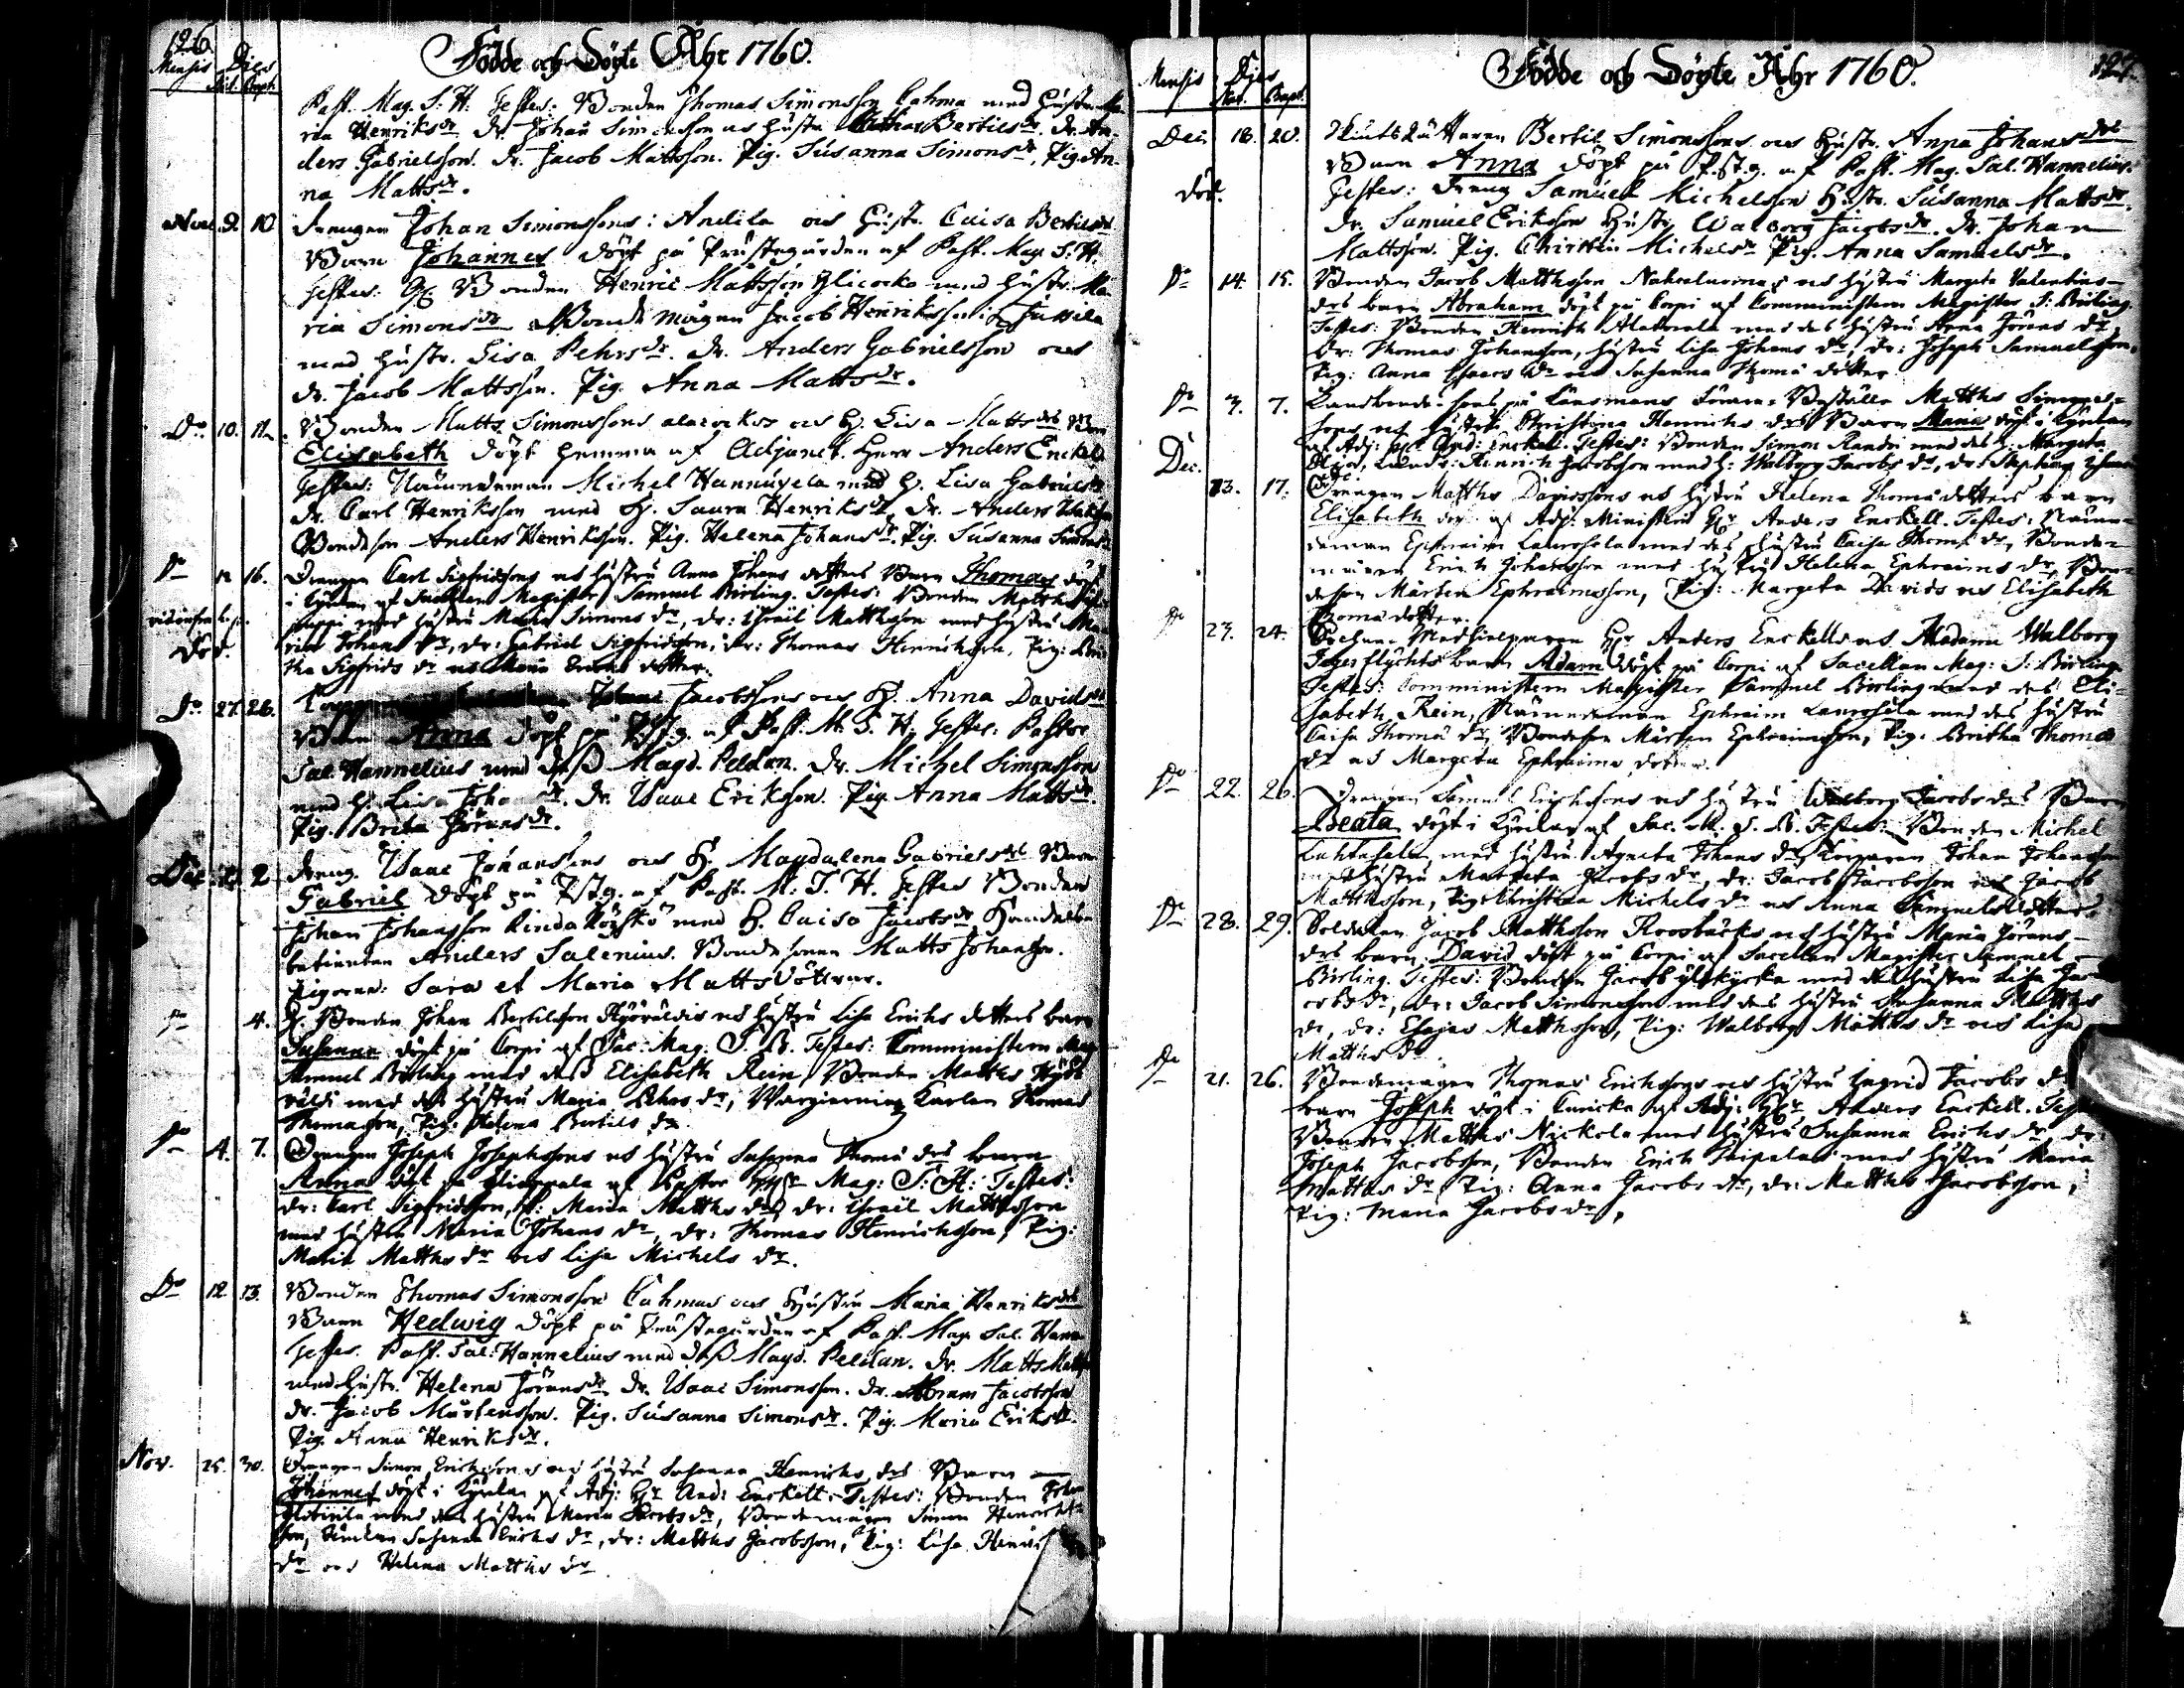 126.
Födde och Döpte Åhr 1760.
Mensis Dies
Nat. Bapt.
Past. Mag. S. H. Testes: Bonden Thomas Simonsson Cahma med hustru Ma-
ria Henriksdr. Dr. Johan Simonsson och hustru Bertilsdr. Dr. An-
ders Gabrielsson. Dr. Jacob Mattsson. Pig. Susanna Simonsdr, Pig. An-
na Mattsdr.
Nov. 9. 10 Drengen Johan Simonssons: Andila och hustr. Caisa Bertilsdr
Barn Johannes döpt på Prästegården af Past. Mag. S. H.
Testes: Bonden Henric Mattsson med hustr. Ma-
ria Simonsdr Bonde mågen Jacob Henriksson Jussila
med hustr. Lisa Pehrsdr. Dr. Anders Gabrielsson och
dr. Jacob Mattsson. Pig. Anna Mattsdr.
Do 10. 11. Bonden Matts Simonssons och H. Lisa Mattsdrs Barn
Elisabeth döpt hemma af Adjunct. Herr Anders Enckel
Testes: Nämndeman Michel Hannugela med H. Lisa Gabrielsdr
Dr. Carl Henriksson med H. Saara Henriksdr, Dr. Anders
Bondeson Anders Henriksson. Pig. Helena Johansdr. Pig. Susanna Simonsdr
Do 12 16. Drengen Carl Sigfridssons och hustru Anna Johans dotters Barn Thomas döpt
i Kyrkan af Sacellan Magister Samuel Birling. Testes: Bonden Matths
med hustru Maria Simons dr, dr: Israel Matthsson med hustru Ma-
död. ria Johans dr, dr: Gabriel Sigfridsson, dr: Thomas Henrichsson, Pig: Bri-
tha Sigfrids dr och Maria Erichs dotter.
Do 27. 28. Jacobssons och H. Anna Davidsdr
Barn Anna döpt på P.st.g. af Past. M. S. H. Testes: Pastor
Sal. Hannelius med dess Magd. Peldan. Dr. Michel Simonsson
med H. Lisa Dr. Isaac Eriksson. Pig. Anna Mattsdr.
Pig. Brita Göransdr.
Dec. 2 Dreng. Isaac Johanssons och H. Magdalena Gabrielsdrs Barn
Gabriel döpt på P.st.g. af Past. M. S. H. Testes Bonden
Johan Johansson med H. Caisa Jacobsdr Handels
betienten Anders Salenius. Bondesonen Matts Johansson.
Pigorna: Sara et Maria Mattsdöttrar.
Do 4. Bonden Johan Bertilsson och hustru Lisa Erichs dotters barn
Susanna döpt på Corpi af Sac: Mag. S. B. Testes: Comministern Mag
Samuel Birling med dess Elisabeth Rein, Bonden Matths
med dess hustru Maria Pehrs dr, Karlen Thomas
Thomasson, Pig: Helena Bertils dr.
Do 4. 7. Drengen Joseph Josephssons och hustru Susanna Thomæ drs barn
Anna döpt af Pastor Mag: S. H: Testes:
dr: Carl Sigfridsson, H: Maria Matths dr, dr: Israel Matthsson
med hustru Maria Johans dr, dr: Thomas Henrichsson, Pig:
Marit Matths dr och Lisa Michels dr.
Do 12. 13. Bonden Thomas Simonsson Cahmas och Hustru Maria Henriksdrs
Barn Hedwig döpt på Prästegården af Past. Mag. Sal. Han
Testes. Past. Sal: Hannelius med dess Magd. Peldan. Dr. Matts
med hustr. Helena Göransdr. Dr. Isaac Simonsson. Dr. Abram Jacobsson
dr. Jacob Mårtensson. Pig. Susanna Simonsdr. Pig. Maria Eriksdr.
Pig. Anna Henriksdr.
Nov. 25. 30. Drengen Simon Erichssons och hustru Susanna Henrichs drs Barn
Johannes döpt i Kyrkan af Adj: Hr And: Enckell. Testes: Bonden
med dess hustru Maria Jacobs dr, Bondemågen Simon Henrichs-
son, Susanna Erichs dr, dr: Matths Jacobsson, Pig: Lisa
dr och Helena Matths dr
127.
Födde och Döpte Åhr 1760.
Mensis Dies
Nat. Bapt.
Dec. 18. 20. Bertil Simonssons och Hustr. Anna Johansdrs
Barn Anna döpt på P.st.g. af Past. Mag. Sal. Hannelius.
död. Testes: Dreng Samuel Michelsson Hustr. Susanna Mattsdr.
Dr. Samuel Eriksson Hustr. Walborg Jacobsdr. Dr. Johan
Mattsson. Pig. Christin Michelsdr Pig. Anna Samuelsdr.
Do 14. 15. Bonden Jacob Matthsson och hustru Margeta Valentins-
drs barn Abraham döpt på Corpi af Comministern Magister S: Birling.
Testes: Bonden Henrich med des hustru Anna Görans dr,
Dr: Thomas Johansson, hustru Lisa Johans dr, Dr: Joseph Samuelsson,
Pig: Anna Isaacs dr och Susanna Thomæ dotter
Do 3. 7. Matths Simons-
sons och hustru Christina Henrichs drs Barn Maria döpt i Kyrkan
af Adj: Hr And: Enckell. Testes: Bonden Simon med des h: Margeta
Dec. Henrich Jacobsson med h: Walborg Jacobs dr, dr: Stephan
13. 17. Drengen Matths Davidssons och hustru Helena Thomædotters barn
Elisabeth döpt af Adj: Ministern Hr Anders Enckell. Testes: Nämn-
deman Ephraim Laurosela med des hustru Caisa Thomæ dr, Bonde-
mågen Erich Johansson med hustru Helena Ephraims dr, Bon-
deson Mårten Ephraimsson, Pig: Margeta Davids och Elisabeth
Thomædotter.
Do 23. 24. Hr Anders Enckells och Madame Walborg
barn Adam döpt på Corpi af Sacellan Mag: S: Birling.
Testes: Comministern Magister Samuel Birling med des Eli-
sabeth Rein, Nämndeman Ephraim Laurosela med des hustru
Caisa Thomæ dr, Bondeson Mårten Ephraimsson, Pig: Britha Thomæ
dr och Margeta Ephraims dotter.
Do 22. 26. Drengen Samuel Erichssons och hustru Walborg Jacobs drs Barn
Beata döpt i Kyrkan af Sac. M. S. B. Testes: Bonden Michel
med hustru Agneta Johans dr, Johan Johansson
med hustru Margeta Jacobs dr, dr: Jacob Jacobsson och Jacob
Matthsson, Pig: Christina Michels dr och Anna Samuels dotter.
Do 28. 29. Soldaten Jacob Matthsson Roosbäcks och hustru Maria Görans-
drs barn David döpt på Corpi af Sacellan Magister Samuel
Birling. Testes: Bonden Jacob med des hustru Lisa Ja-
cobs dr, dr: Jacob Simonsson med des hustru Susanna Matths
dr, dr: Esajas Matthsson, Pig: Walborg Matths dr och Lisa
Matths dr.
Do 21. 26. Bondemågen Thomas Erichssons och hustru Ingrid Jacobs
barn Joseph döpt i Curicka af Adj: Hr Anders Enckell.
Bonden Matths Nickola med hustru Susanna Erichs dr, dr:
Joseph Jacobsson, Bonden Erich med hustru Maria
Matths dr, Pig: Anna Jacobs dr, dr: Matths Jacobsson,
Pig: Maria Jacobs dr,